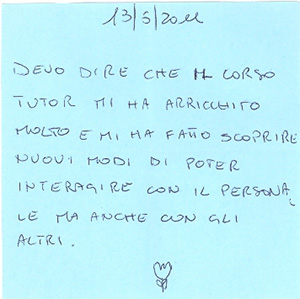 13/5/2011
DEVO DIRE CHE IL CORSO
TUTOR MI HA ARRICCHITO
MOLTO E MI HA FATTO SCOPRIRE
NUOVI MODI DI POTER
INTERAGIRE CON IL PERSONA
LE MA ANCHE CON GLI
ALTRI.